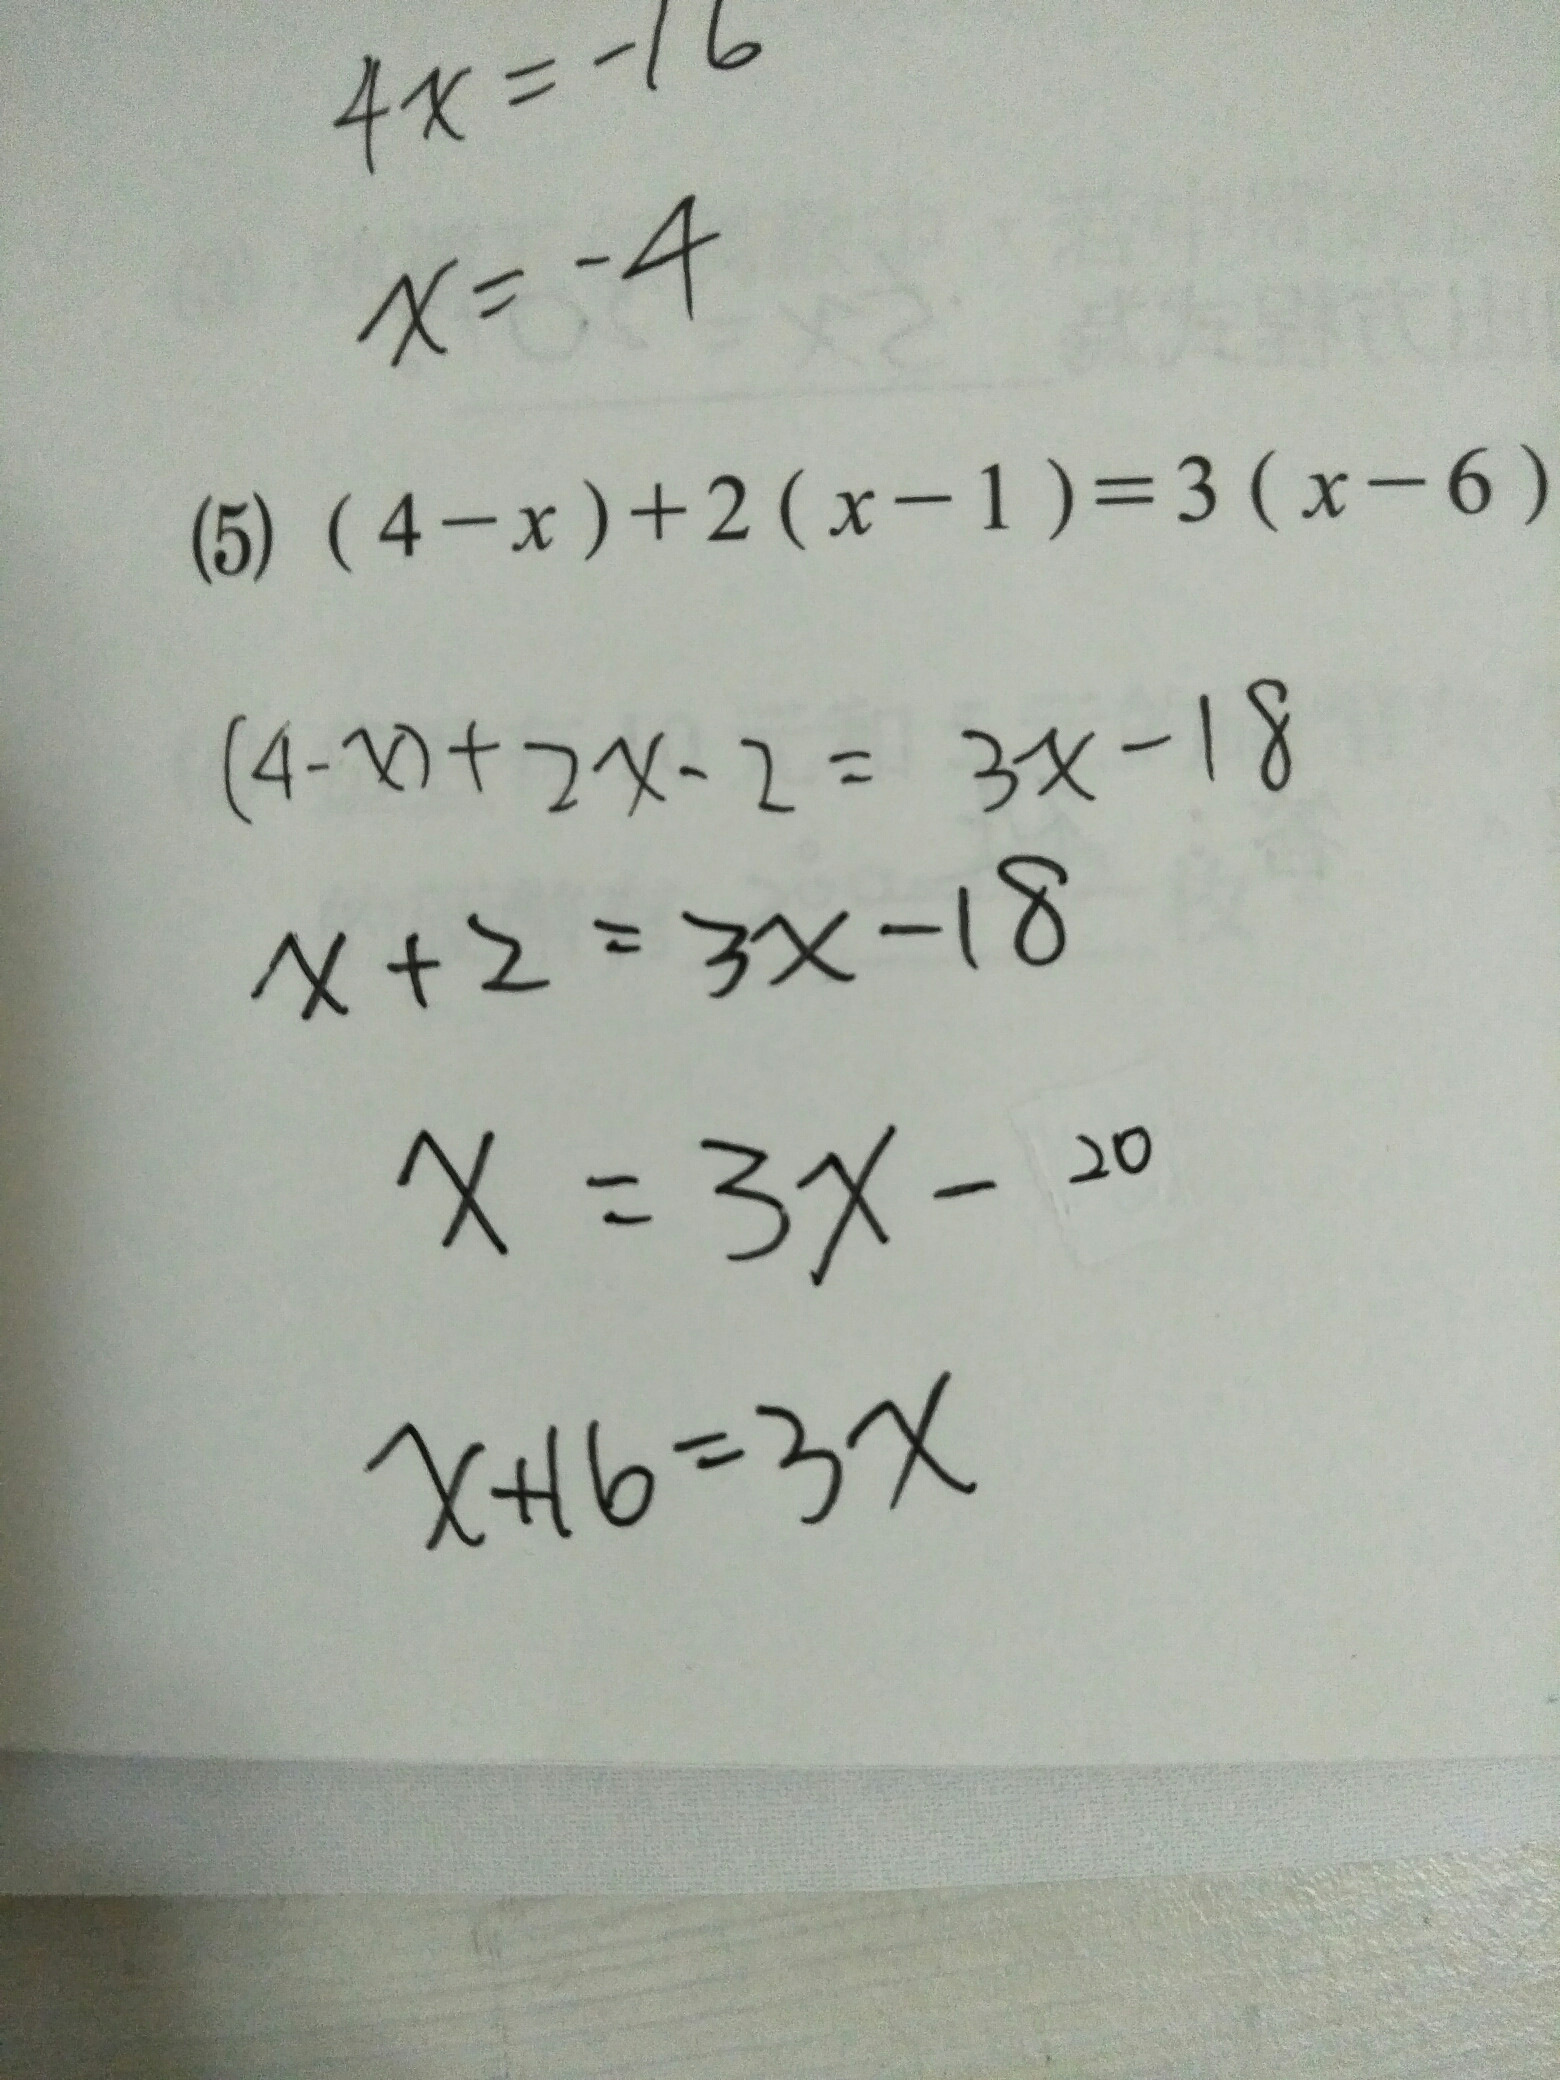 4x=-16
x=-4
(5) (4-x)+2(x-1)=3(x-6)
(4-x)+2x-2= 3x-18
x+2=3x-18
x=3x-20
x+16=3x